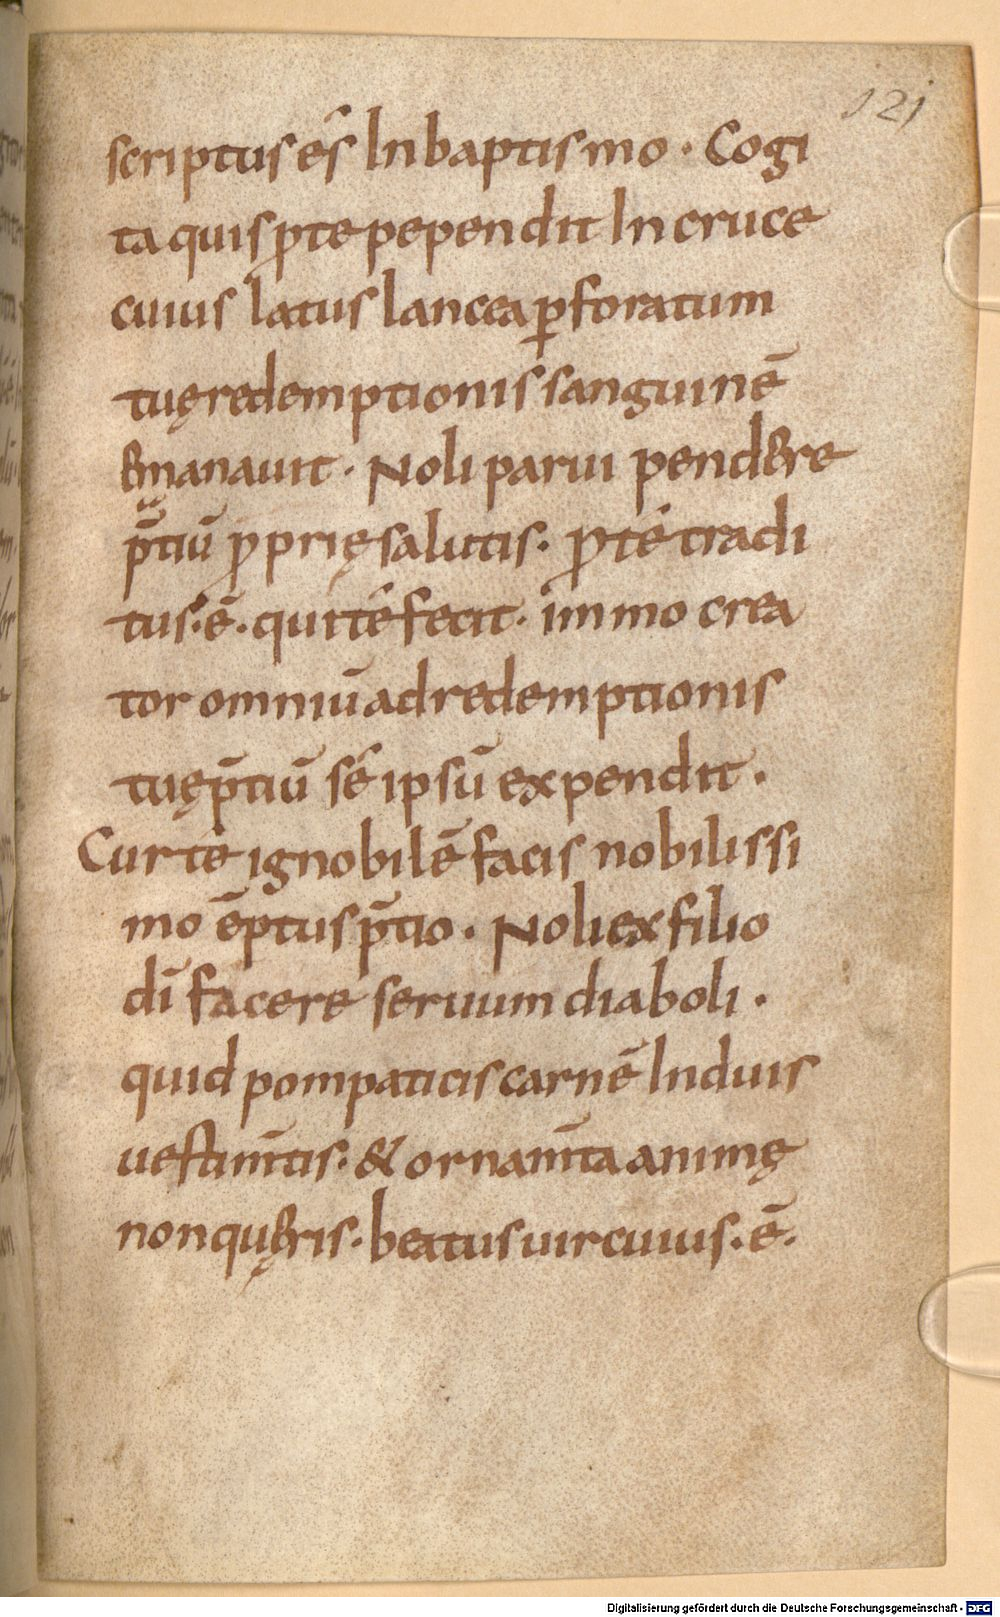 121
scriptus és In baptismo · Cogi
ta quis p te pependit In cruce
cuius latus lancea pforatum
tuę redemptionis sanguinē
&manauit · Noli parui pend&re
p̄tiū pprię salutis · p té tradi
tus · ē · qui té fecit · immo crea
tor omniū ad redemptionis
tuę p̄tiū sé ipsū expendit ·
Cur té ignobilē facis nobilissi
mo ēptus p̄tio · Noli ex filio
dī facere seruum diaboli ·
quid pompaticis carnē Induis
uestim̄tis · & ornam̄ta animę
non quę&ris · beatus uir cuius · ē ·
Digitalisierung gefördert durch die Deutsche Forschungsgemeinschaft - DFG